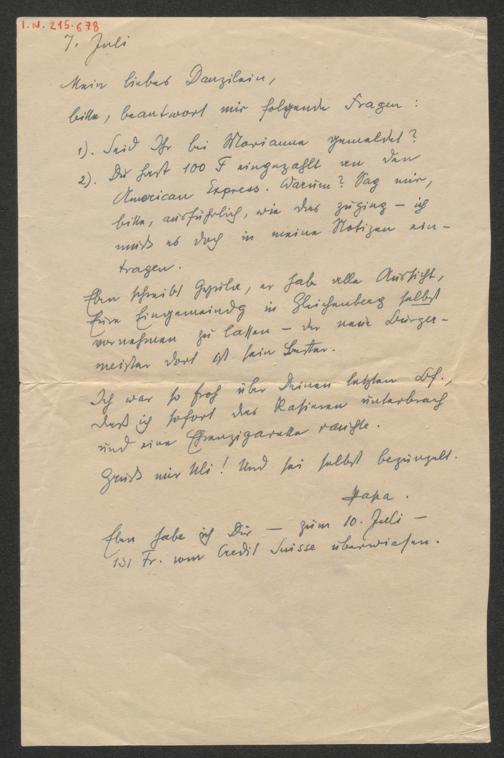 I.N. 215.678
7. Juli
Mein liebes Danzilein,
bitte, beantwort mir folgende Fragen:
1). Seid Ihr bei Marianne gemeldet?
2). Du hast 100 F eingezahlt an den
American Express. Warum? Sag mir,
bitte, ausführlich, wie das zuging – ich
muß es doch in meine Notizen ein-
tragen.
Eben schreibt, er habe alle Aussicht,
Eure Eingemeindg in Gleichenberg selbst
vornehmen zu lassen – der neue Bürger-
meister dort ist sein
Ich war so froh über Deinen letzten Bf.,
daß ich sofort das Rasieren unterbrach
und eine rauchte.
Grüß mir Uli! Und sei selbst
Papa.
Eben habe ich Dir – zum 10. Juli –
131 Fr. vom Credit Suisse überwiesen.